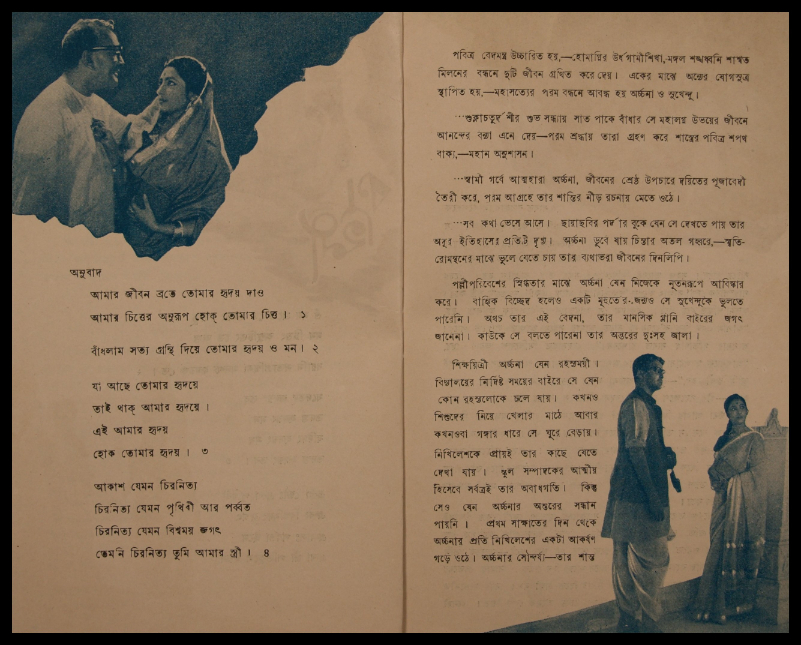 অনুবাদ
আমার জীবন ব্রতে তোমার হৃদয় দাও
আমার চিত্তের অনুরূপ হোক্ তোমার চিত্ত । ১
বাঁধলাম সত্য গ্রন্থি দিয়ে তোমার হৃদয় ও মন । ২
যা আছে তোমার হৃদয়ে
তাই থাক্ আমার হৃদয়ে ।
এই আমার হৃদয়
হোক তোমার হৃদয় । ৩
আকাশ যেমন চিরনিত্য
চিরনিত্য যেমন পৃথিবী আর পর্ব্বত
চিরনিত্য যেমন বিশ্বময় জগৎ
তেমনি চিরনিত্য তুমি আমার স্ত্রী । ৪
পবিত্র বেদমন্ত্র উচ্চারিত হয়,—হোমাগ্নির উর্ধগামীশিখা,-মঙ্গল শঙ্খধ্বনি শাশ্বত
মিলনের বন্ধনে দুটি জীবন গ্রথিত করে দেয়। একের মাঝে অন্যের যোগসূত্র
স্থাপিত হয়,—মহাসত্যের পরম বন্ধনে আবদ্ধ হয় অর্চ্চনা ও সুখেন্দু।
···শুক্লাচতুর্দশীর শুভ সন্ধ্যায় সাত পাকে বাঁধার সে মহালগ্ন উভয়ের জীবনে
আনন্দের বন্যা এনে দেয়—পরম শ্রদ্ধায় তারা গ্রহণ করে শাস্ত্রের পবিত্র শপথ
বাক্য,—মহান অনুশাসন।
···স্বামী গর্বে আত্মহারা অর্চ্চনা, জীবনের শ্রেষ্ঠ উপচারে দয়িতের পূজাবেদী
তৈরী করে, পরম আগ্রহে তার শান্তির নীড় রচনায় মেতে ওঠে।
···সব কথা ভেসে আসে। ছায়াছবির পর্দার বুকে যেন সে দেখতে পায় তার
অদূর ইতিহাসের প্রতিটি দৃশ্য। অর্চ্চনা ডুবে যায় চিন্তার অতল গহ্বরে,—স্মৃতি-
রোমন্থনের মাঝে ভুলে যেতে চায় তার ব্যথাভরা জীবনের দিনলিপি।
পল্লীপরিবেশের স্নিগ্ধতার মাঝে অর্চ্চনা যেন নিজেকে নূতনরূপে আবিস্কার
করে। বাহ্যিক বিচ্ছেদ হলেও একটি মুহূর্তের জন্যও সে সুখেন্দুকে ভুলতে
পারেনি। অথচ তার এই বেদনা, তার মানসিক গ্লানি বাইরের জগৎ
জানেনা। কাউকে সে বলতে পারেনা তার অন্তরের দুঃসহ জ্বালা।
শিক্ষয়িত্রী অর্চ্চনা যেন রহস্যময়ী।
বিদ্যালয়ের নির্দ্দিষ্ট সময়ের বাইরে সে যেন
কোন রহস্যলোকে চলে যায়। কখনও
শিশুদের নিয়ে খেলার মাঠে আবার
কখনওবা গঙ্গার ধারে সে ঘুরে বেড়ায়।
নিখিলেশকে প্রায়ই তার কাছে যেতে
দেখা যায়। স্কুল সম্পাদকের আত্মীয়
হিসেবে সর্বত্রই তার অবাধগতি। কিন্তু
সেও যেন অর্চ্চনার অন্তরের সন্ধান
পায়নি। প্রথম সাক্ষাতের দিন থেকে
অর্চ্চনার প্রতি নিখিলেশের একটা আকর্ষণ
গড়ে ওঠে। অর্চ্চনার সৌন্দর্য্য—তার শান্ত